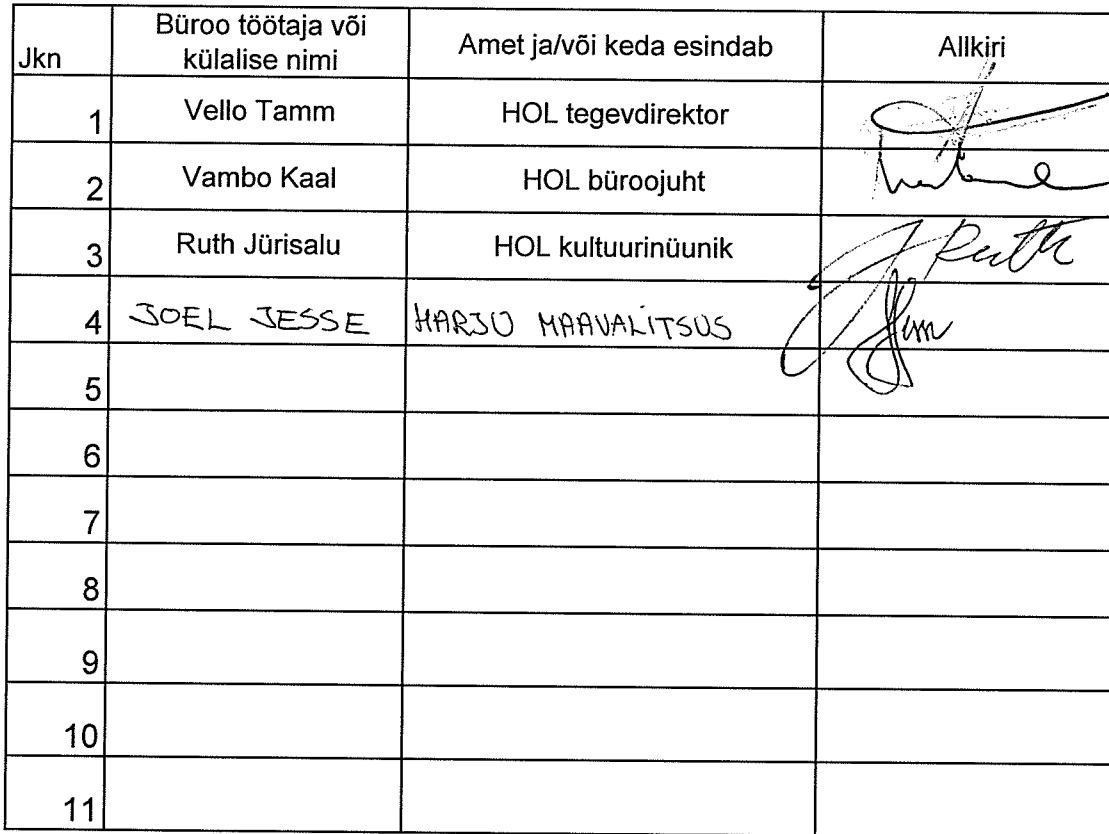 Jkn Büroo töötaja või külalise nimi Amet ja/või keda esindab Allkiri
1 Vello Tamm HOL tegevdirektor
2 Vambo Kaal HOL büroojuht
3 Ruth Jürisalu HOL kultuurinüunik Ruth
4 JOEL JESSE HARJU MAAVALITSUS
5
6
7
8
9
10
11